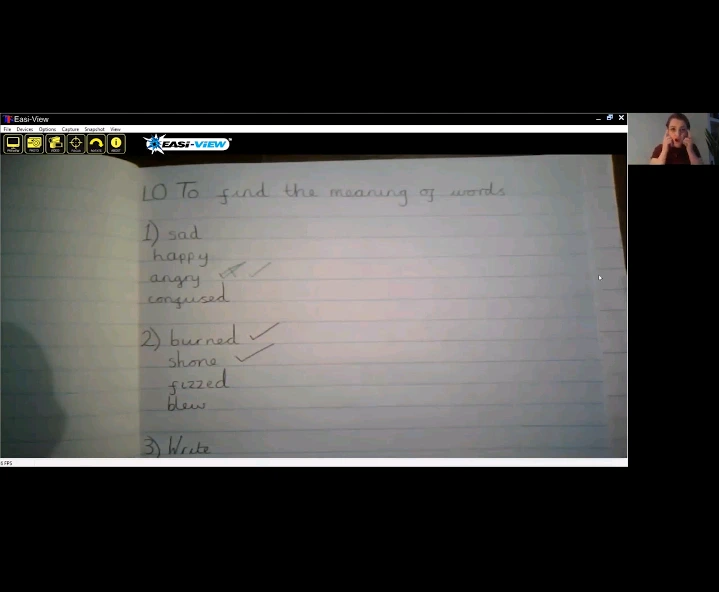 Easi-View
File Devices Options Capture Snapshot View
EASi-ViEW
LO To find the meaning of words
1) sad
happy
angry
confused
2) burned
shone
fizzed
blew
3) Write
6 FPS